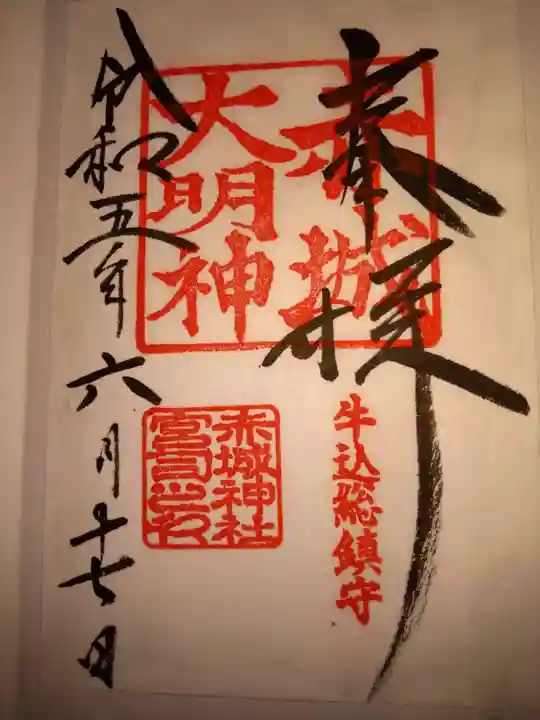 奉拝
赤城
大明神
牛込総鎮守
赤城神社
宮司之印
令和五年六月十七日